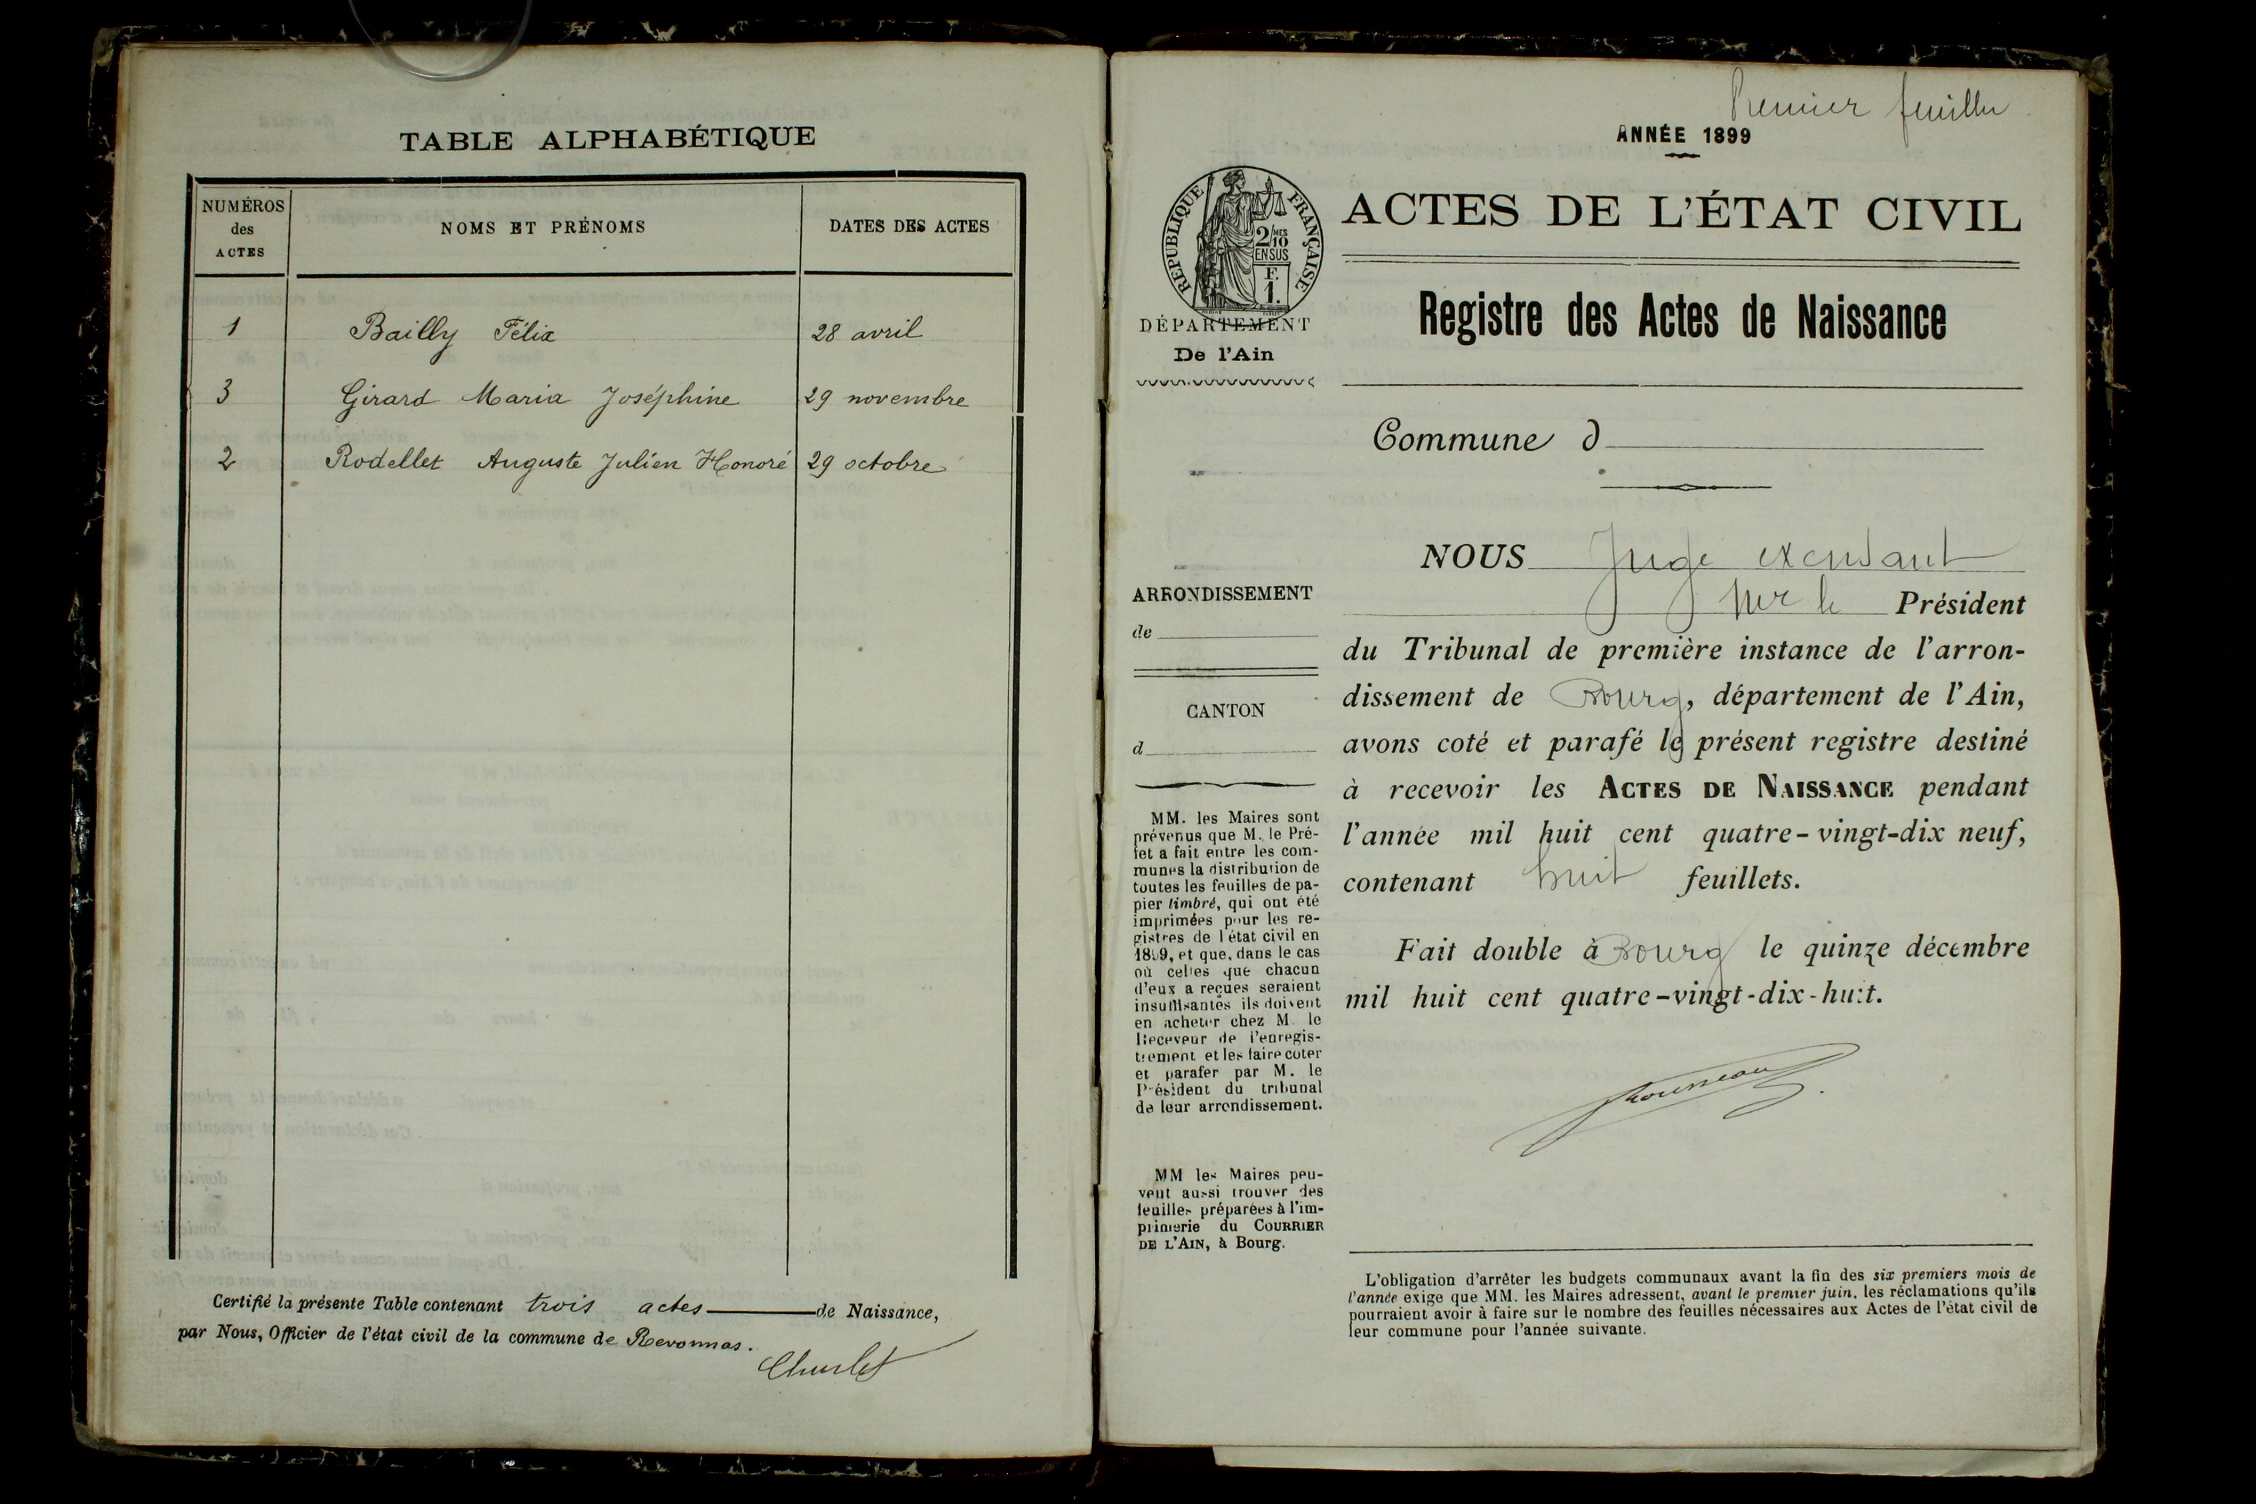 TABLE ALPHABÉTIQUE
NUMÉROS des ACTES
NOMS ET PRÉNOMS
DATES DES ACTES
1 Bailly Félix 28 avril
3 Girard Maria Joséphine 29 novembre
2 Rodellet Auguste Julien Honoré 29 octobre
Certifié la présente Table contenant trois actes de Naissance,
par Nous, Officier de l'état civil de la commune de Revonnas.
Premier feuillet
ANNÉE 1899
RÉPUBLIQUE FRANÇAISE
2/10 MES
EN SUS
F.
1.
DÉPARTEMENT
De l'Ain
ACTES DE L'ÉTAT CIVIL
Registre des Actes de Naissance
Commune d
ARRONDISSEMENT
de
CANTON
d
MM. les Maires sont
prévenus que M. le Pré-
fet a fait entre les com-
munes la distribution de
toutes les feuilles de pa-
pier timbré, qui ont été
imprimées pour les re-
gistres de l'état civil en
1899, et que, dans le cas
où celles que chacun
d'eux a reçues seraient
insuffisantes ils doivent
en acheter chez M. le
Receveur de l'enregis-
trement et les faire coter
et parafer par M. le
Président du tribunal
de leur arrondissement.
MM les Maires peu-
vent aussi trouver des
feuilles préparées à l'im-
primerie du COURRIER
DE L'AIN, à Bourg.
NOUS Juge
Président
du Tribunal de première instance de l'arron-
dissement de Bourg, département de l'Ain,
avons coté et parafé le présent registre destiné
à recevoir les ACTES DE NAISSANCE pendant
l'année mil huit cent quatre-vingt-dix neuf,
contenant huit feuillets.
Fait double à Bourg le quinze décembre
mil huit cent quatre-vingt-dix-huit.
L'obligation d'arrêter les budgets communaux avant la fin des six premiers mois de
l'année exige que MM. les Maires adressent, avant le premier juin, les réclamations qu'ils
pourraient avoir à faire sur le nombre des feuilles nécessaires aux Actes de l'état civil de
leur commune pour l'année suivante.